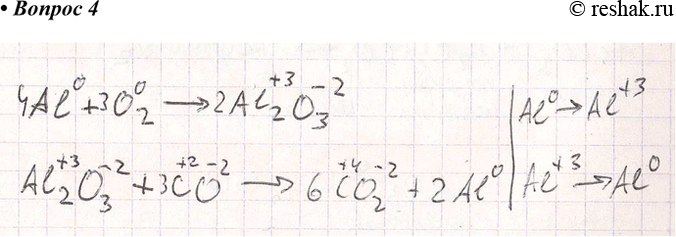 • Вопрос 4
© reshak.ru
4Al⁰ + 3O₂⁰ → 2Al₂⁺³O₃⁻² | Al⁰ → Al⁺³
Al₂⁺³O₃⁻² + 3C⁺²O⁻² → 6C⁺⁴O₂⁻² + 2Al⁰ | Al⁺³ → Al⁰